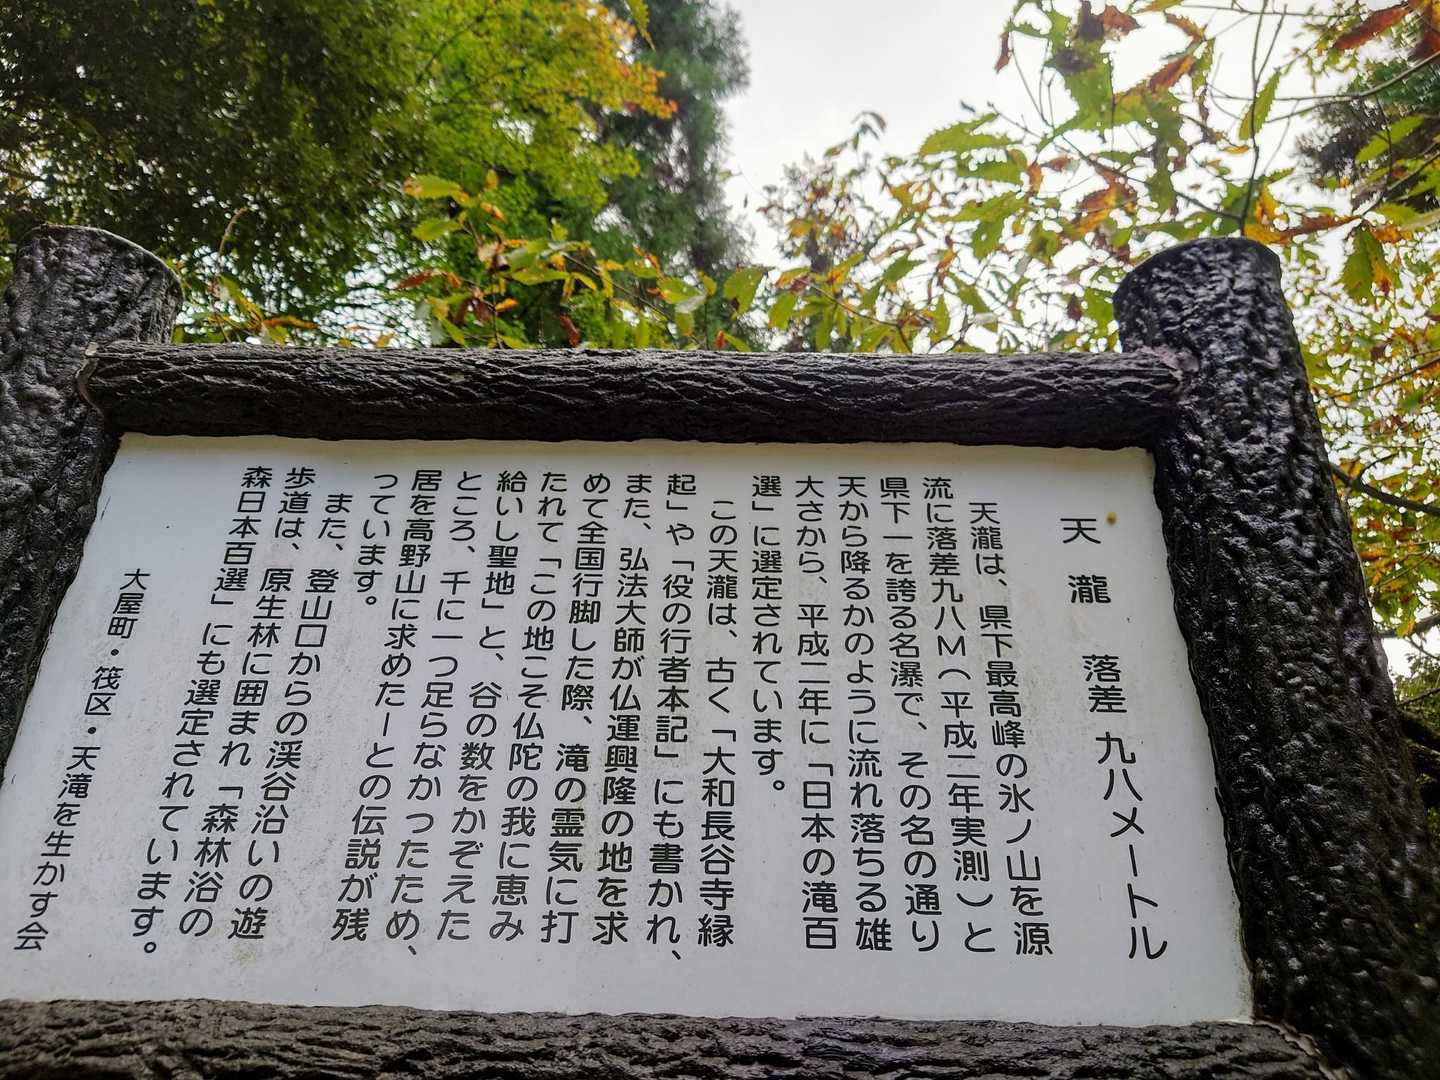 天瀧 落差 九八メートル
天瀧は、県下最高峰の氷ノ山を源
流に落差九八M(平成二年実測)と
県下一を誇る名瀑で、その名の通り
天から降るかのように流れ落ちる雄
大さから、平成二年に「日本の滝百
選」に選定されています。
この天瀧は、古く「大和長谷寺縁
起」や「役の行者本記」にも書かれ、
また、弘法大師が仏運興隆の地を求
めて全国行脚した際、滝の霊気に打
たれて「この地こそ仏陀の我に恵み
給いし聖地」と、谷の数をかぞえた
ところ、千に一つ足らなかったため、
居を高野山に求めたーとの伝説が残
っています。
また、登山口からの渓谷沿いの遊
歩道は、原生林に囲まれ「森林浴の
森日本百選」にも選定されています。
大屋町・筏区・天滝を生かす会